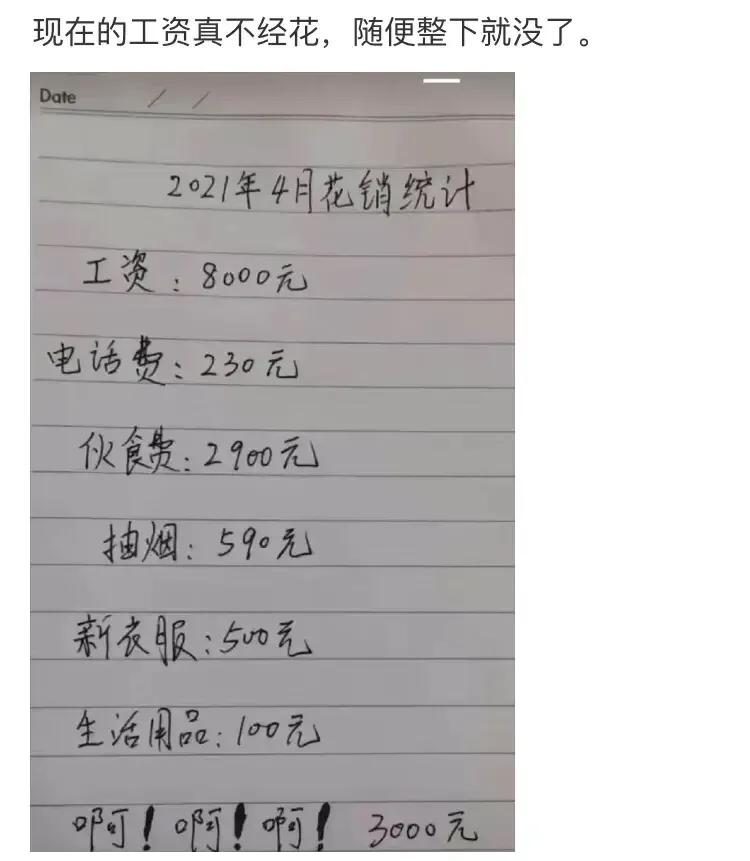 现在的工资真不经花，随便整下就没了。
Date / /
2021年4月花销统计
工资：8000元
电话费：230元
伙食费：2900元
抽烟：590元
新衣服：500元
生活用品：100元
啊！啊！啊！ 3000元